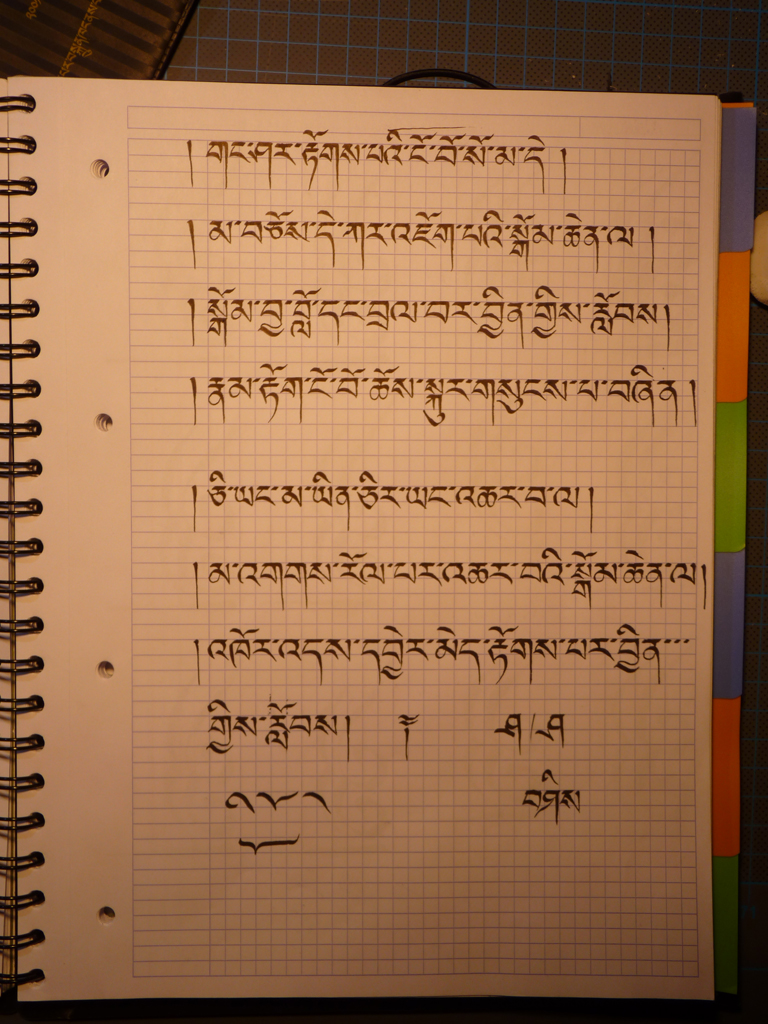 ། གང་ཤར་རྟོགས་པའི་ངོ་བོ་སོ་མ་དེ །
། མ་བཅོས་དེ་ཀར་འཇོག་པའི་སྒོམ་ཆེན་ལ །
། སྒོམ་བྱ་བློ་དང་བྲལ་བར་བྱིན་གྱིས་རློབས །
། རྣམ་རྟོག་ངོ་བོ་ཆོས་སྐུར་གསུངས་པ་བཞིན །
། ཅི་ཡང་མ་ཡིན་ཅིར་ཡང་འཆར་བ་ལ །
། མ་འགགས་རོལ་པར་འཆར་བའི་སྒོམ་ཆེན་ལ །
། འཁོར་འདས་དབྱེར་མེད་རྟོགས་པར་བྱིན་་་
གྱིས་རློབས ། ཤ / ཤ
བཤིས